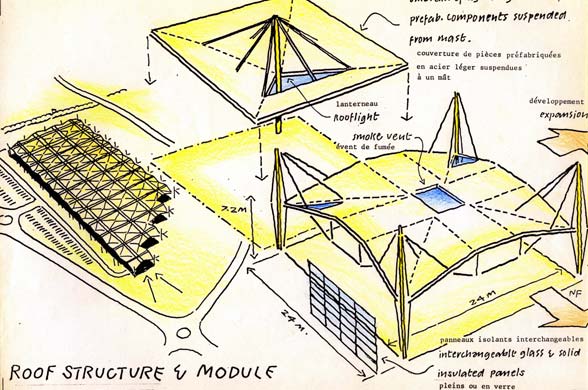 prefab. components suspended
from mast.
couverture de pièces préfabriquées
en acier léger suspendues
à un mât
lanterneau
Rooflight
smoke vent
évent de fumée
développement
expansion
7.2M
24M.
24M
NF
panneaux isolants interchangeables
interchangeable glass & solid
insulated panels
pleins ou en verre
ROOF STRUCTURE & MODULE